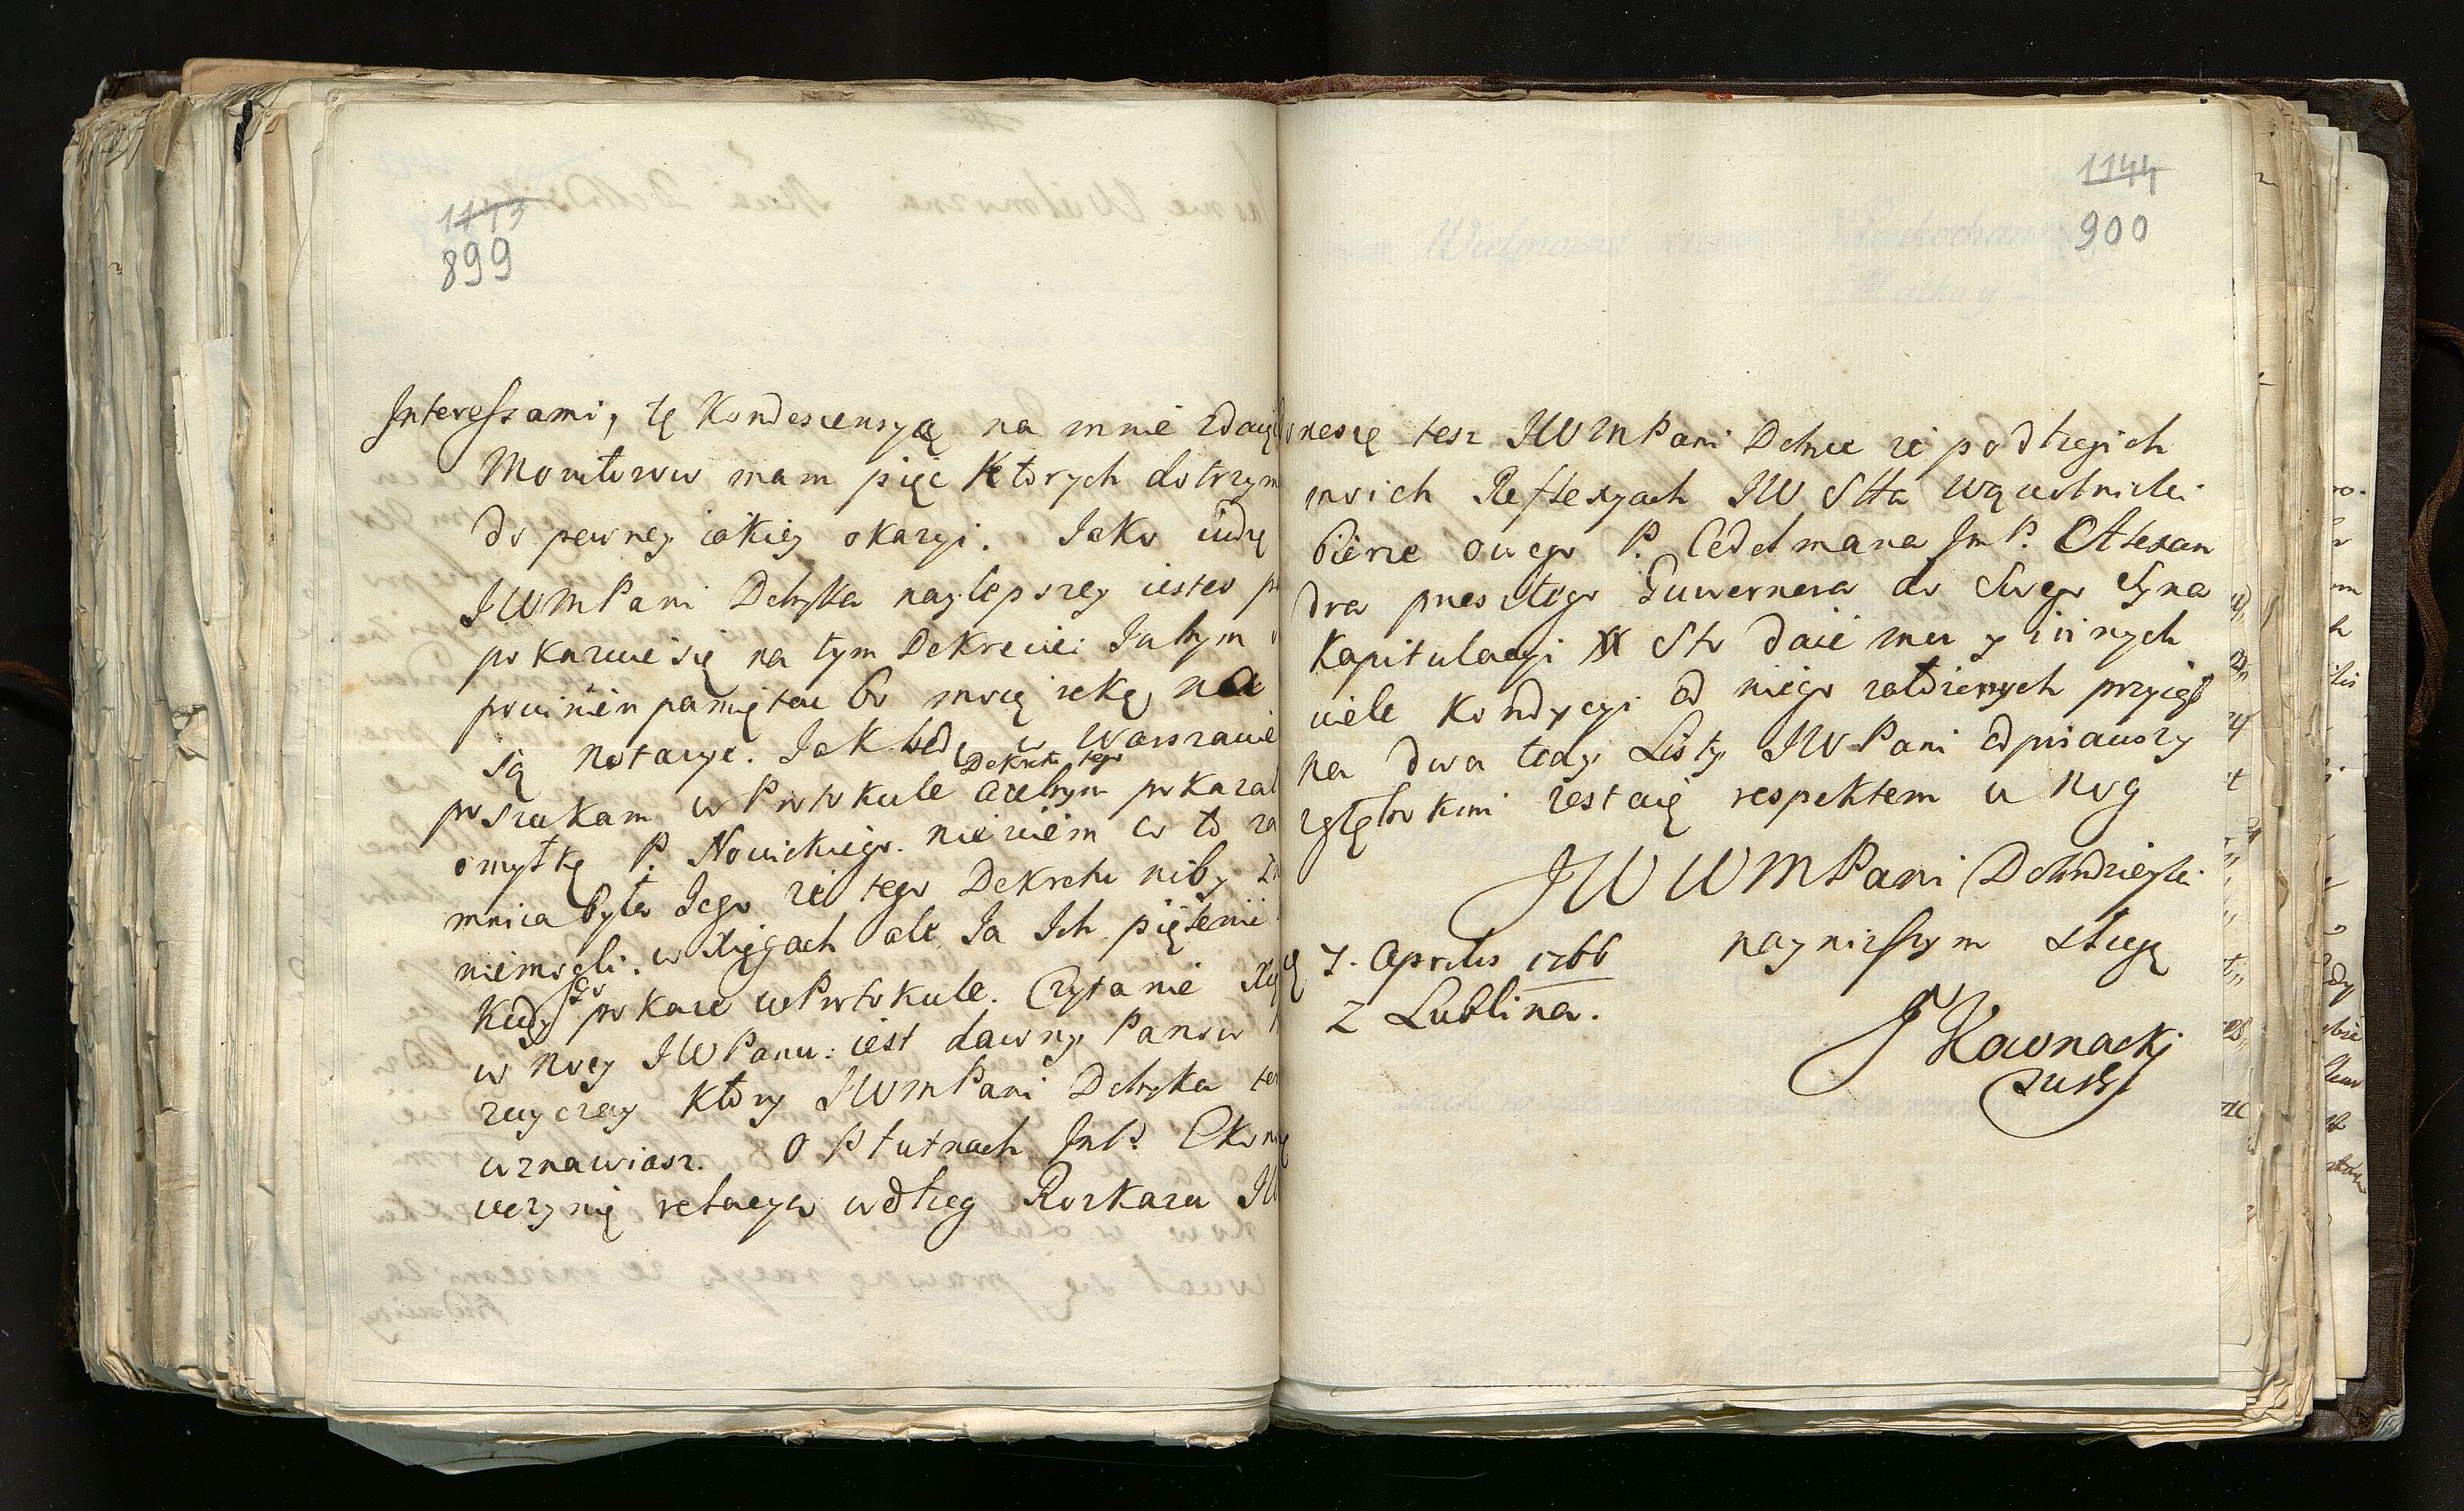 1143
899
Interessami, tę Kondescensyą na mnie zdaię
Monitorow mam pięc Ktorych dotrzym
do pewney iakiey okazyi. Jako
JWMPani Dobrka naylepszey iestes
pokazuie się na tym Dekrecie: Ja tym
powinien pamiętac bo moią ręką na
są Notacye. Jak będę w Warszawie
Dekretu tego
poszukam w Protokule abym pokazał
omyłkę P. Nowickiego. niewiem co to za
mnica była Jego że tego Dekretu niby
niemogli. w Xięgach ale Ja Ich
Kiedy go pokaże w Protokule. Czytanie
w Nocy JWPanu: iest dawny Panow
zwyczay Ktory JWMPani Dobrka
wznawiasz. O Płutnach JmP.
uczynię relacyą wdług Rozkazu JW
1144
900
noszę tesz JWMPani Dobrce że po długich
moich Reflexyach JW Stta Wąwolnicki
bierze owego P. Cedelmana JmP. Alexan
dra przeszłego Guwernera do Swego Syna
Kapitulacyi Sto daie mu y innych
wiele Kondycyi od niego założonych przyiął
na dwa tedy Listy JWPani odpisawszy
zgłębokim zestaię respektem u Nog
JWWMPani Dobrodzieyki
nayniższym sługą
7. Aprilis 1766
z Lublina.
J Kownacki